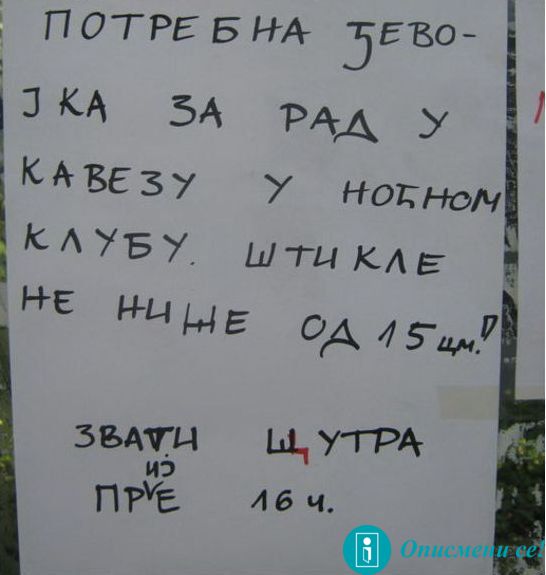 ПОТРЕБНА ЂЕВО-
ЈКА ЗА РАД У
КАВЕЗУ У НОЋНОМ
КЛУБУ. ШТИКЛЕ
НЕ НИЖЕ ОД 15 цм.!
ЗВАТИ ЩУТРА
ПРИЈЕ 16 ч.
Описмени се!